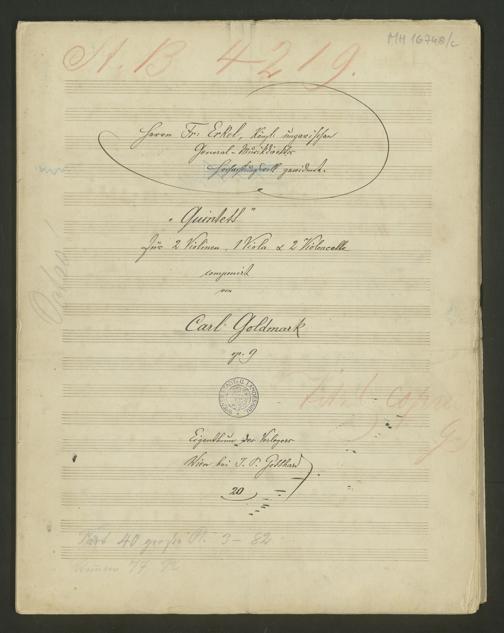 A. B 4219.
MH 16748/c
Herrn Fr: Erkel, königl. ungarischer
General-Musikdirektor
hochachtungsvoll gewidmet.
„Quintett"
für 2 Violinen, 1 Viola & 2 Violoncelle
componirt
von
Carl Goldmark
op. 9
Eigenthum des Verlegers
Wien bei J. P. Gotthard
20
40 große 3 – 82